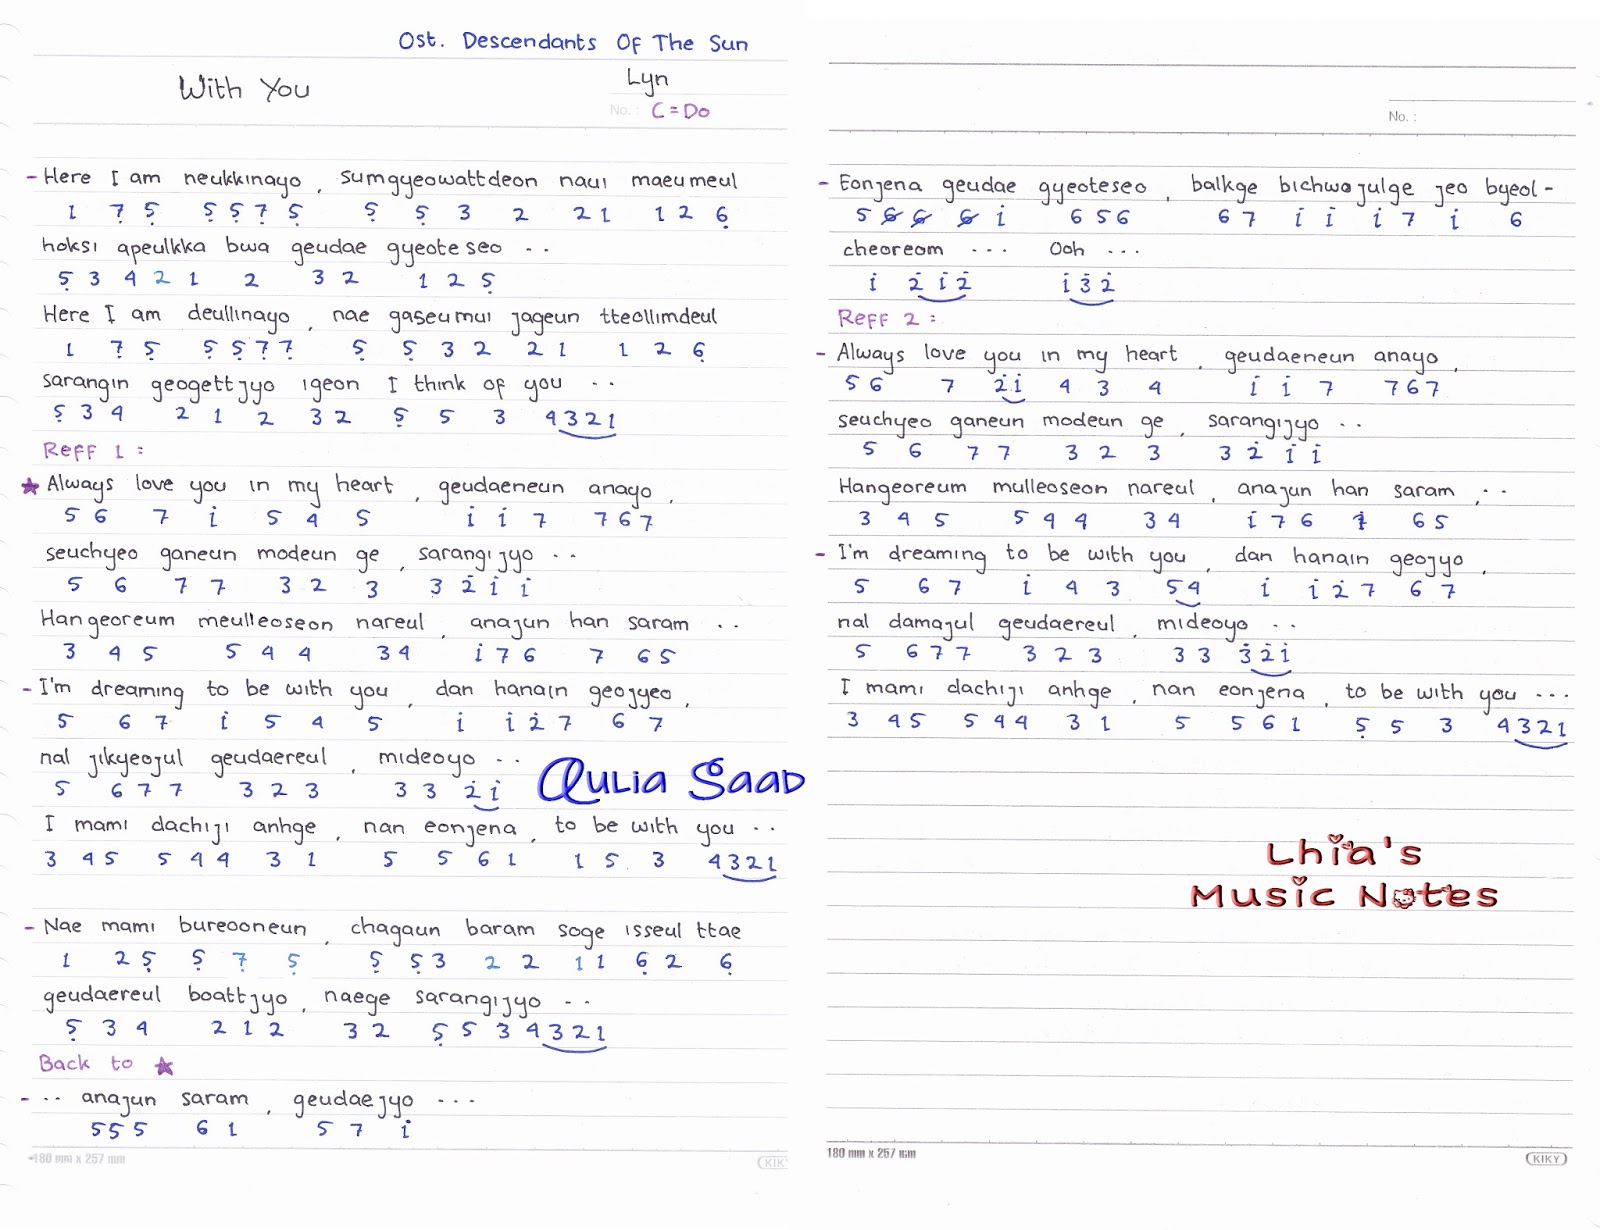 Ost. Descendants Of The Sun
With You
Lyn
No. : C = Do
- Here I am neukkinayo , sumgyeowattdeon naui maeumeul
1 7̣ 5̣ 5̣ 5̣ 7̣ 5̣ 5̣ 5̣ 3 2 2 1 1 2 6̣
hoksi apeulkka bwa geudae gyeoteseo ..
5̣ 3 4 2 1 2 3 2 1 2 5̣
Here I am deullinayo , nae gaseumui jageun tteollimdeul
1 7̣ 5̣ 5̣ 5̣ 7̣ 7̣ 5̣ 5̣ 3 2 2 1 1 2 6̣
sarangin geogettjyo igeon I think of you ..
5̣ 3 4 2 1 2 3 2 5̣ 5 3 4 3 2 1
Reff 1 :
★ Always love you in my heart , geudaeneun anayo ,
5 6 7 i 5 4 5 i i 7 7 6 7
seuchyeo ganeun modeun ge , sarangijyo ..
5 6 7 7 3 2 3 3 2̇ i i
Hangeoreum meulleoseon nareul , anajun han saram ..
3 4 5 5 4 4 3 4 i 7 6 7 6 5
- I'm dreaming to be with you , dan hanain geojyeo ,
5 6 7 i 5 4 5 i i 2̇ 7 6 7
nal jikyeojul geudaereul , mideoyo ..
5 6 7 7 3 2 3 3 3 2̇ i
Qulia Saad
I mami dachiji anhge , nan eonjena , to be with you ..
3 4 5 5 4 4 3 1 5 5 6 1 1 5. 3 4 3 2 1
- Nae mami bureooneun , chagaun baram soge isseul ttae
1 2 5̣ 5̣ 7̣ 5̣ 5̣ 5̣ 3 2 2 1 1 6̣ 2 6̣
geudaereul boattjyo , naege sarangijyo ..
5̣ 3 4 2 1 2 3 2 5̣ 5 3 4 3 2 1
Back to ★
- .. anajun saram , geudaejyo ...
5 5 5 6 1 5 7 i
180 mm x 257 mm
KIK
No. :
- Eonjena geudae gyeoteseo , balkge bichwojulge jeo byeol -
5 6 6 6 i 6 5 6 6 7 i i i 7 i 6
cheoreom ... Ooh ...
i 2̇ i 2̇ i 3̇ 2̇
Reff 2 :
- Always love you in my heart , geudaeneun anayo ,
5 6 7 2̇ i 4 3 4 i i 7 7 6 7
seuchyeo ganeun modeun ge , sarangijyo ..
5 6 7 7 3 2 3 3 2̇ i i
Hangeoreum mulleoseon nareul , anajun han saram , ..
3 4 5 5 4 4 3 4 i 7 6 7 6 5
- I'm dreaming to be with you , dan hanain geojyo ,
5 6 7 i 4 3 5 4 i i 2̇ 7 6 7
nal damajul geudaereul , mideoyo ..
5 6 7 7 3 2 3 3 3 3̇ 2̇ i
I mami dachiji anhge , nan eonjena , to be with you ...
3 4 5 5 4 4 3 1 5 5 6 1 5̣ 5 3 4 3 2 1
Lhia's
Music Notes
180 mm x 257 mm
KIKY